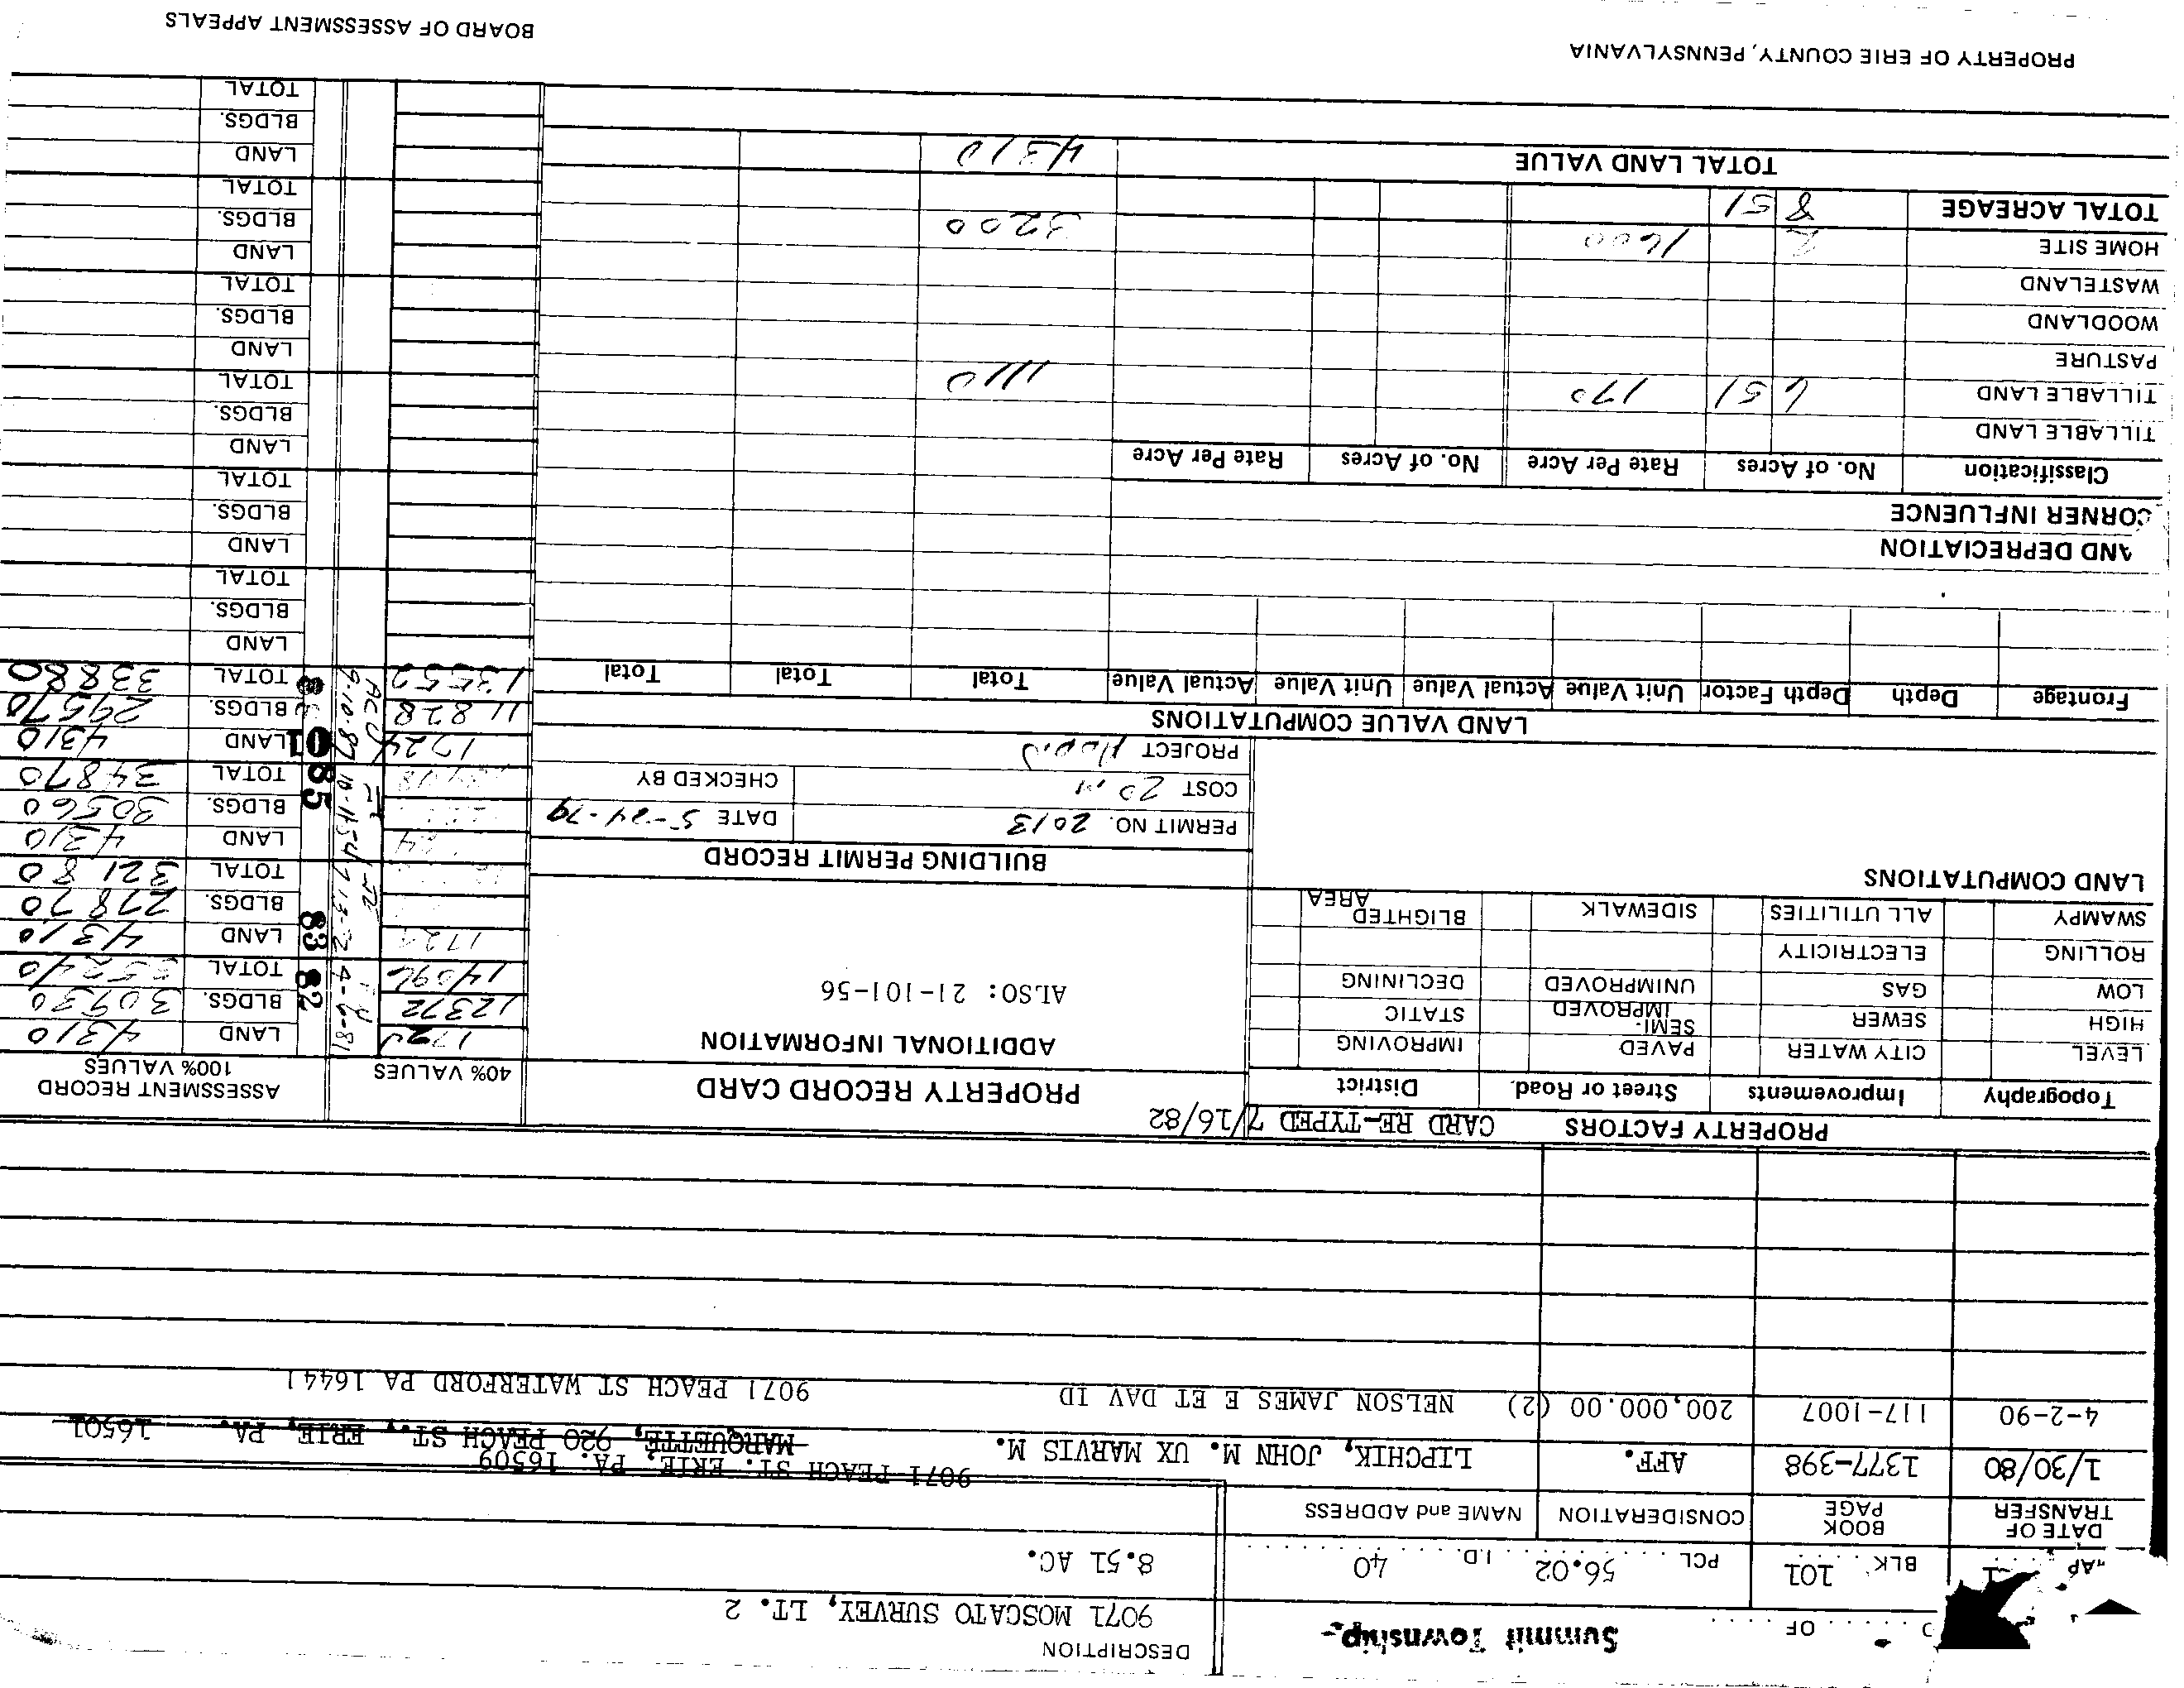 Summit Township
DESCRIPTION
OF
9071 MOSCATO SURVEY, LT. 2
BLK. 101 PCL. 56.02 I.D. 40
8.51 AC.
DATE OF TRANSFER BOOK PAGE CONSIDERATION NAME and ADDRESS
9071 PEACH ST. ERIE, PA. 16509
1/30/80 1377-398 AFF. LIPCHIK, JOHN M. UX MARVIS M. MARQUETTE, 920 PEACH ST., ERIE, PA. 16501
4-2-90 117-1007 200,000.00 (2) NELSON JAMES E ET DAV ID 9071 PEACH ST WATERFORD PA 16441
PROPERTY FACTORS CARD RE-TYPED 7/16/82
Topography Improvements Street or Road. District
LEVEL CITY WATER PAVED IMPROVING
HIGH SEWER SEMI-IMPROVED STATIC
LOW GAS UNIMPROVED DECLINING
ROLLING ELECTRICITY
SWAMPY ALL UTILITIES SIDEWALK BLIGHTED AREA
LAND COMPUTATIONS
PROPERTY RECORD CARD
ADDITIONAL INFORMATION
ALSO: 21-101-56
BUILDING PERMIT RECORD
PERMIT NO. 2013 DATE 5-24-79
COST 20 M CHECKED BY
PROJECT
40% VALUES
ASSESSMENT RECORD
100% VALUES
4-6-81 82
LAND 4310
12372 BLDGS. 30930
14096 TOTAL 35240
83
1724 LAND 4310
BLDGS. 27870
TOTAL 32180
85
LAND 4310
BLDGS. 30560
TOTAL 34870
9-10-87
1724 LAND 4310
11828 BLDGS. 29570
13552 TOTAL 33880
LAND
BLDGS.
TOTAL
LAND
BLDGS.
TOTAL
LAND
BLDGS.
TOTAL
LAND
BLDGS.
TOTAL
LAND
BLDGS.
TOTAL
LAND
BLDGS.
TOTAL
LAND VALUE COMPUTATIONS
Frontage Depth Depth Factor Unit Value Actual Value Unit Value Actual Value Total Total Total
AND DEPRECIATION
CORNER INFLUENCE
Classification No. of Acres Rate Per Acre No. of Acres Rate Per Acre
TILLABLE LAND
TILLABLE LAND 6 51 170 1110
PASTURE
WOODLAND
WASTELAND
HOME SITE 2 1600 3200
TOTAL ACREAGE 8 51
TOTAL LAND VALUE 4310
PROPERTY OF ERIE COUNTY, PENNSYLVANIA
BOARD OF ASSESSMENT APPEALS